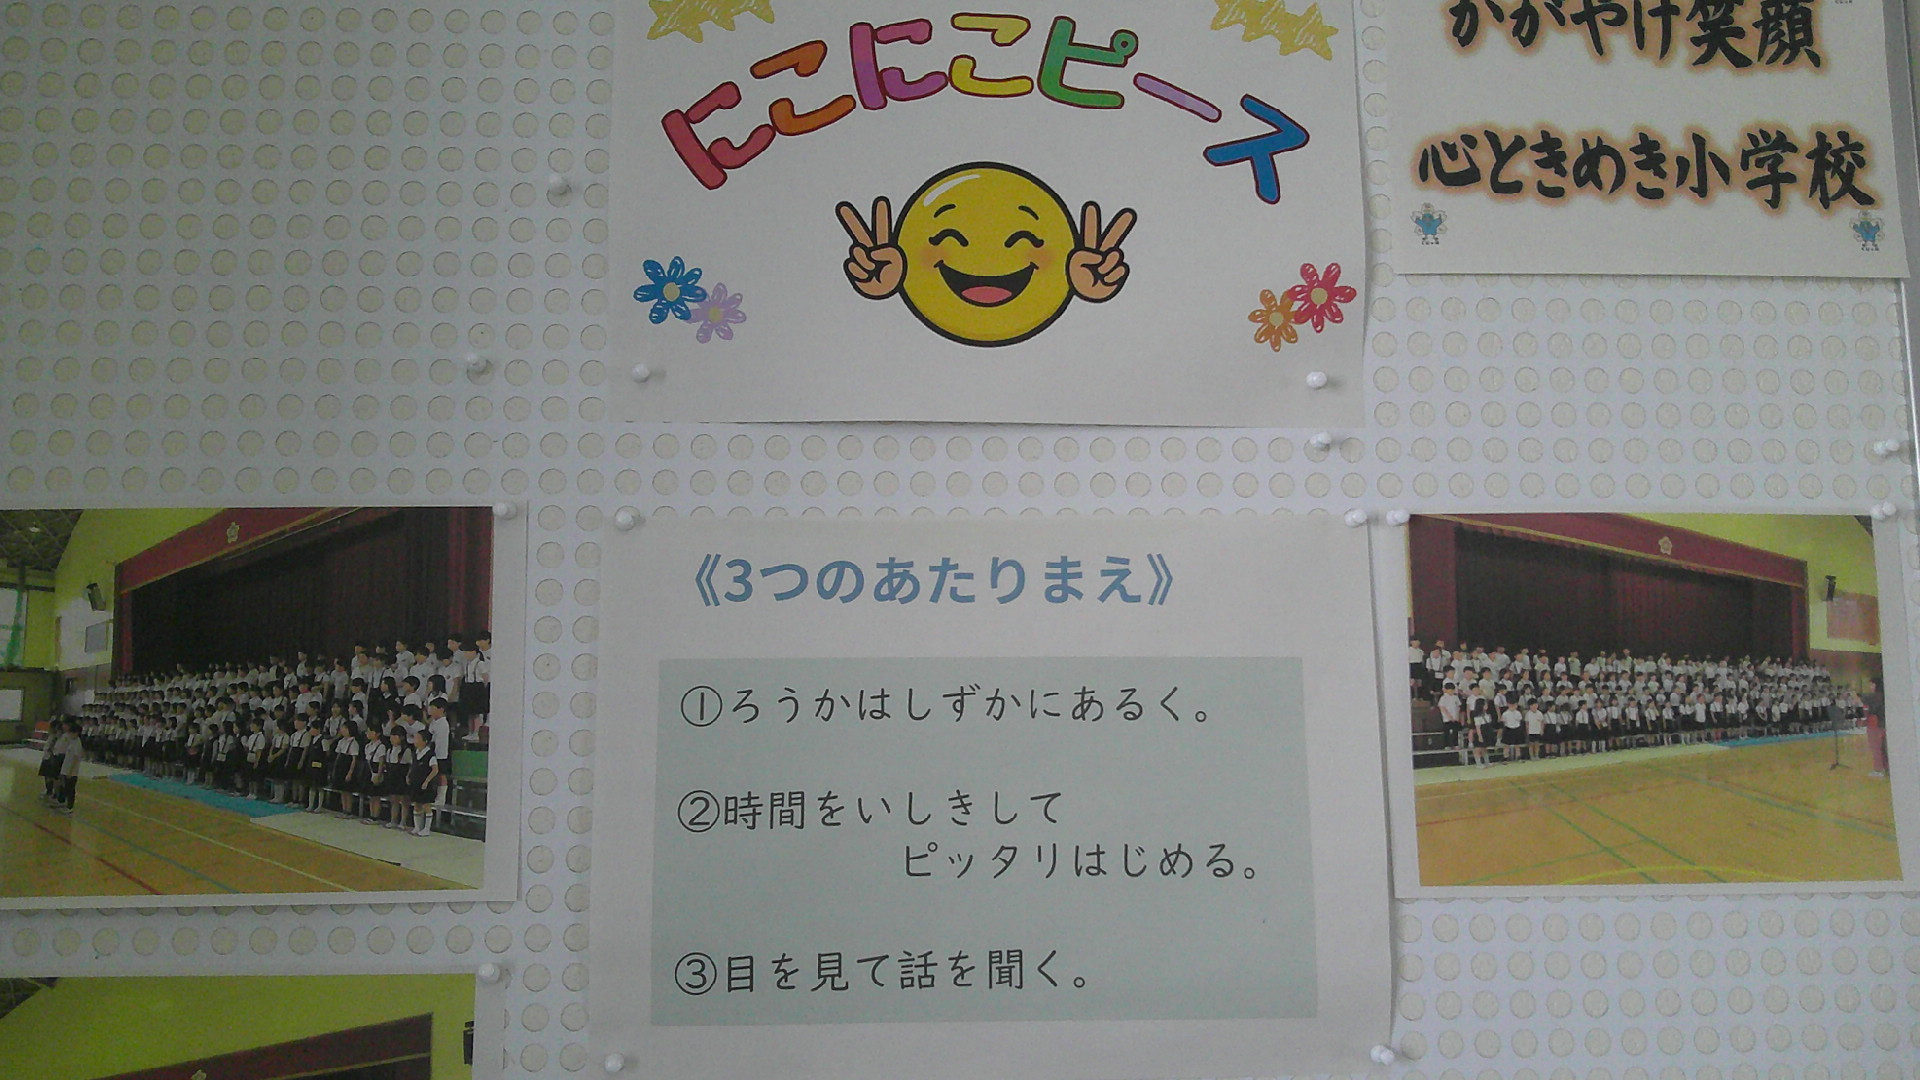 にこにこピース
かがやけ笑顔
心ときめき小学校
《3つのあたりまえ》
①ろうかはしずかにあるく。
②時間をいしきして
ピッタリはじめる。
③目を見て話を聞く。